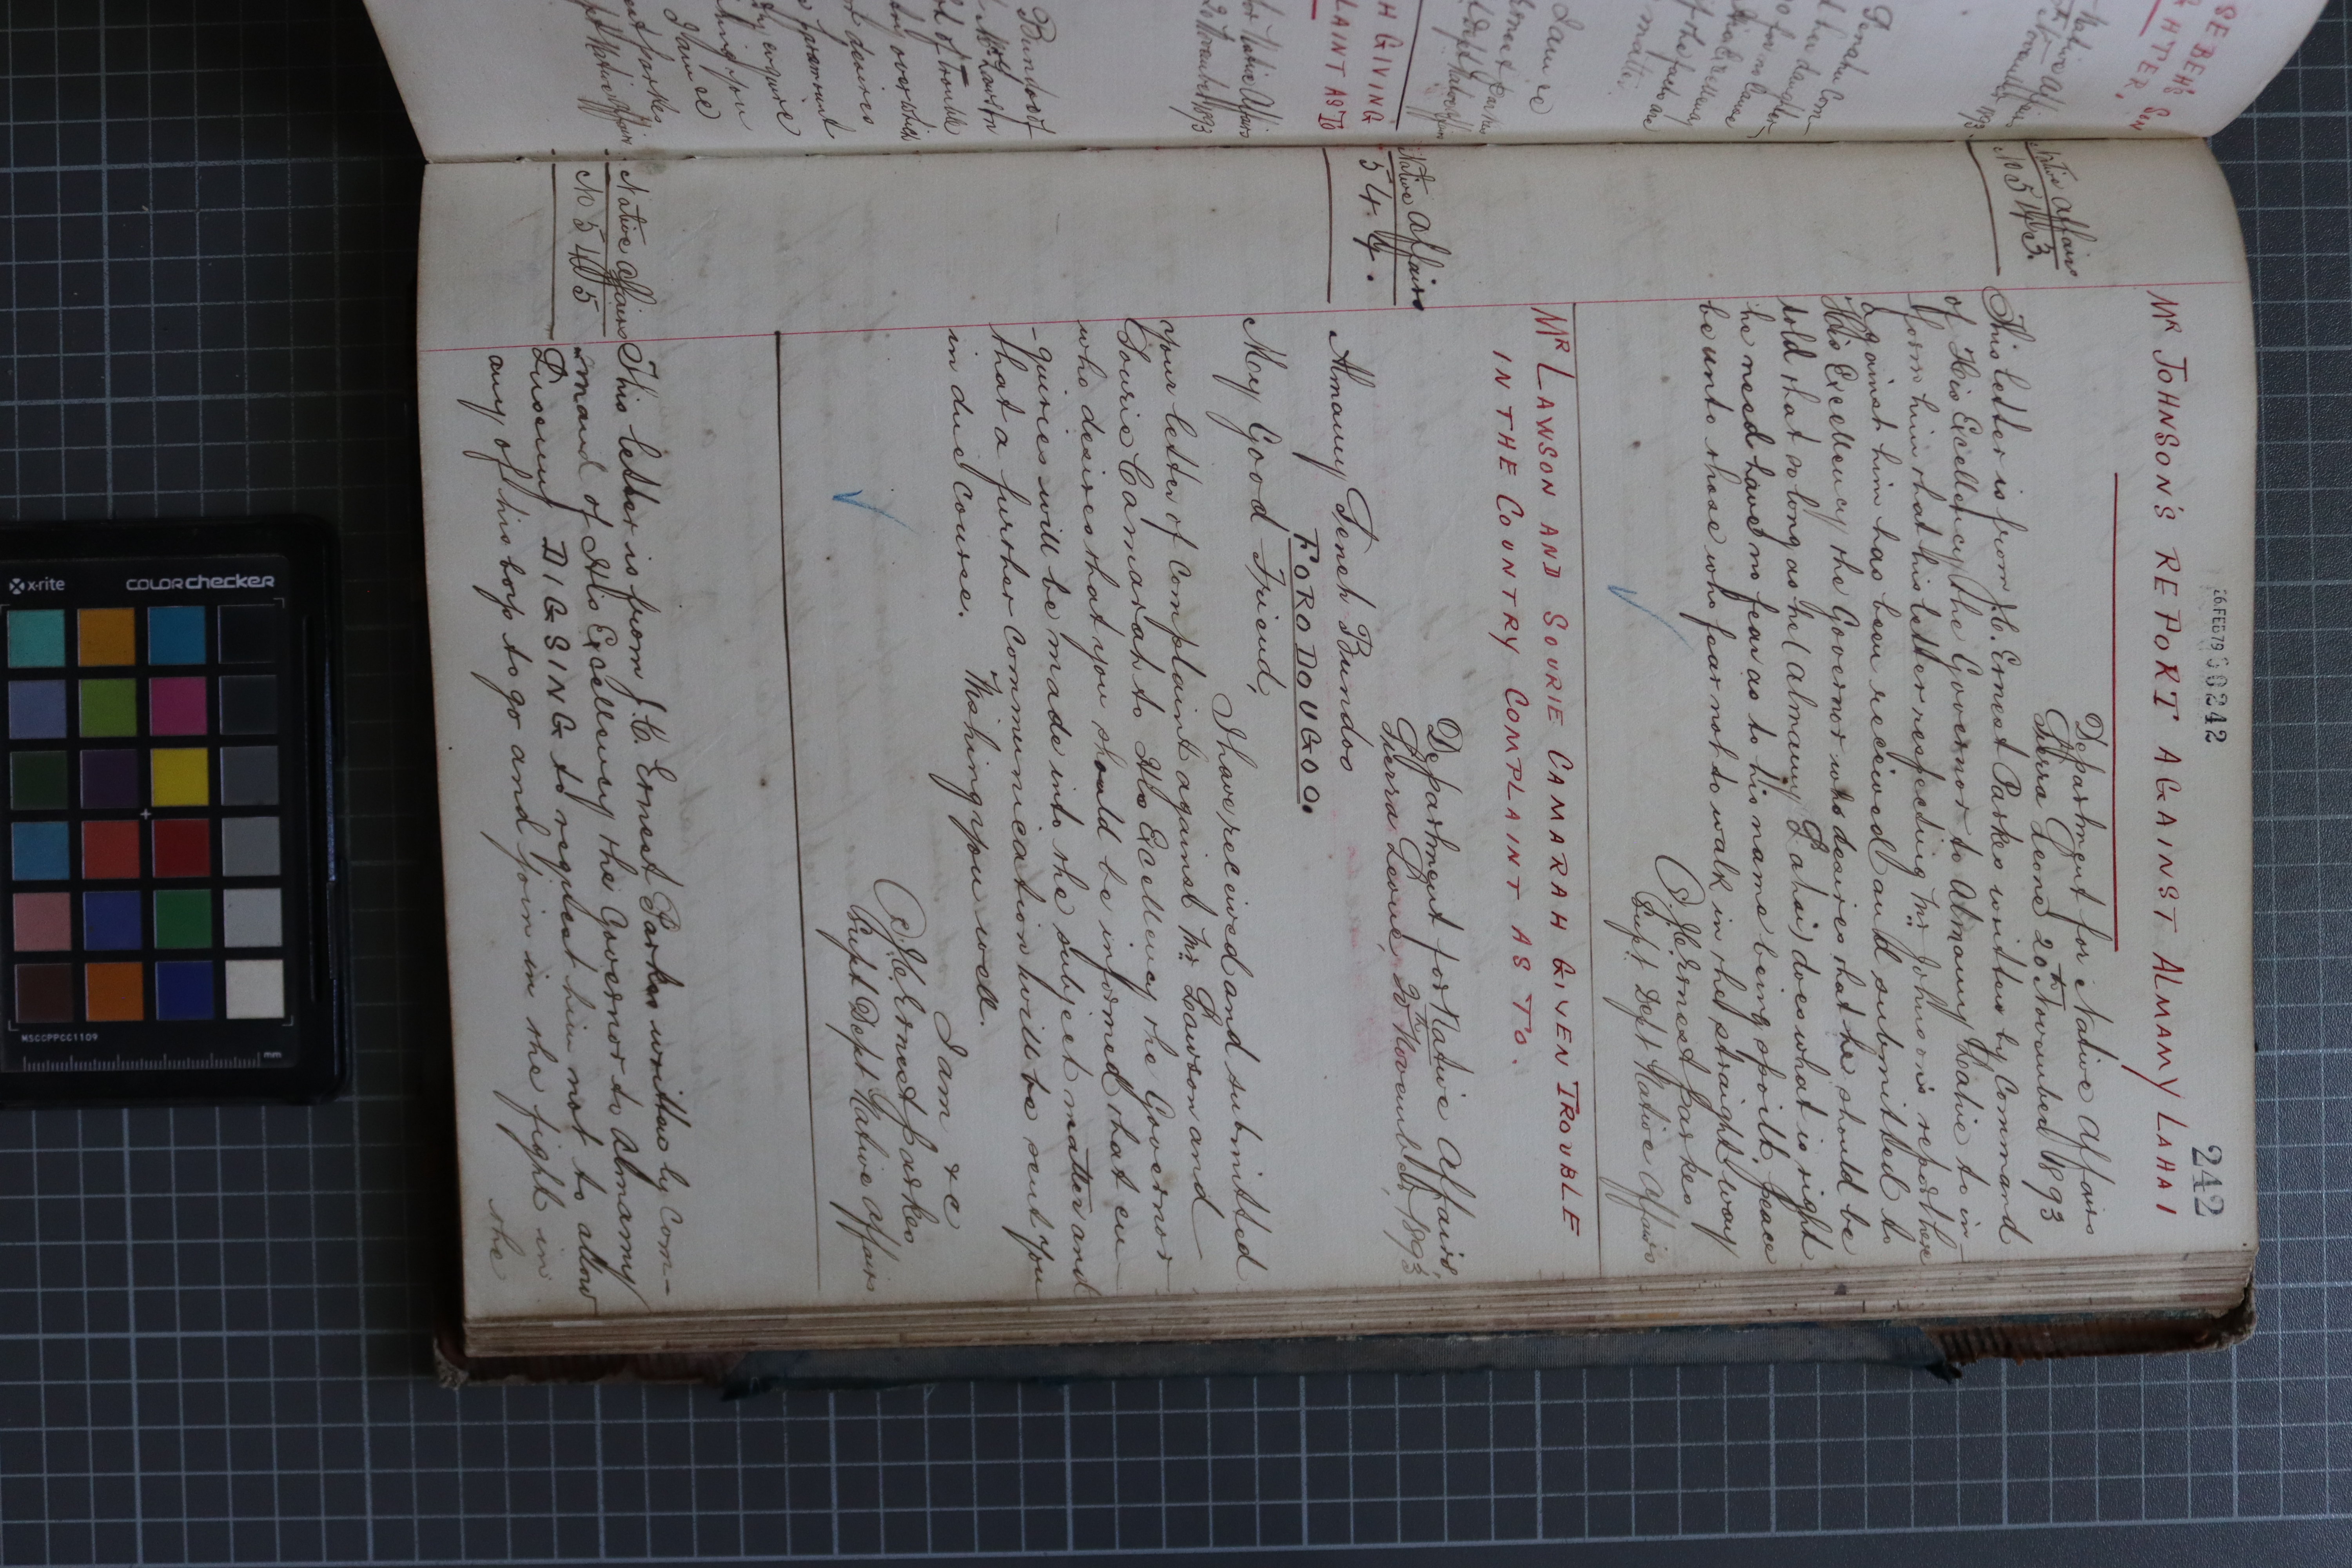 242
26 FEB 79 000242
MR JOHNSON'S REPORT AGAINST ALMAMY LAHAI
Department for Native Affairs
Sierra Leone 20th November 1893
Native Affairs
No 543.
This letter is from J.C. Ernest Parkes written by Command
of His Excellency the Governor to Almamy Lahie to in-
form him that his letter respecting Mr Johnson's report here
against him has been received and submitted to
His Excellency the Governor who desires that he should be
told that so long as he (Almamy Lahai) does what is right
he need have no fear as to his name being spoilt, peace
be unto those who fear not to walk in the straight way
J.C. Ernest Parkes
Supt Dept Native Affairs
MR LAWSON AND SOURIE CAMARAH GIVEN TROUBLE
IN THE COUNTRY COMPLAINT AS TO.
Department for Native Affairs,
Sierra Leone, 20th November, 1893
Native Affairs
544.
Almamy Feneh Bundoo
FORODOUGOO.
My Good Friend,
I have received and submitted
your letter of Complaint against Mr Lawson and
Sourie Camarah to His Excellency the Governor
who desires that you should be informed that en-
-quiries will be made into the subject matter and
that a further Communication will be sent you
in due course. Wishing you well.
I am &c
J.C. Ernest Parkes
Supt Dept Native Affairs
Native Affairs
No 545
This letter is from J.C. Ernest Parkes written by Com-
-mand of His Excellency the Governor to Almamy
DIGSING to request him not to allow
any of his boys to go and join in the fight in
the
SEBEH'S
HTER,
H GIVING
LANT AS TO
Bundoo of
I am &c
x-rite
COLORchecker
MSCCPPCC1109
mm